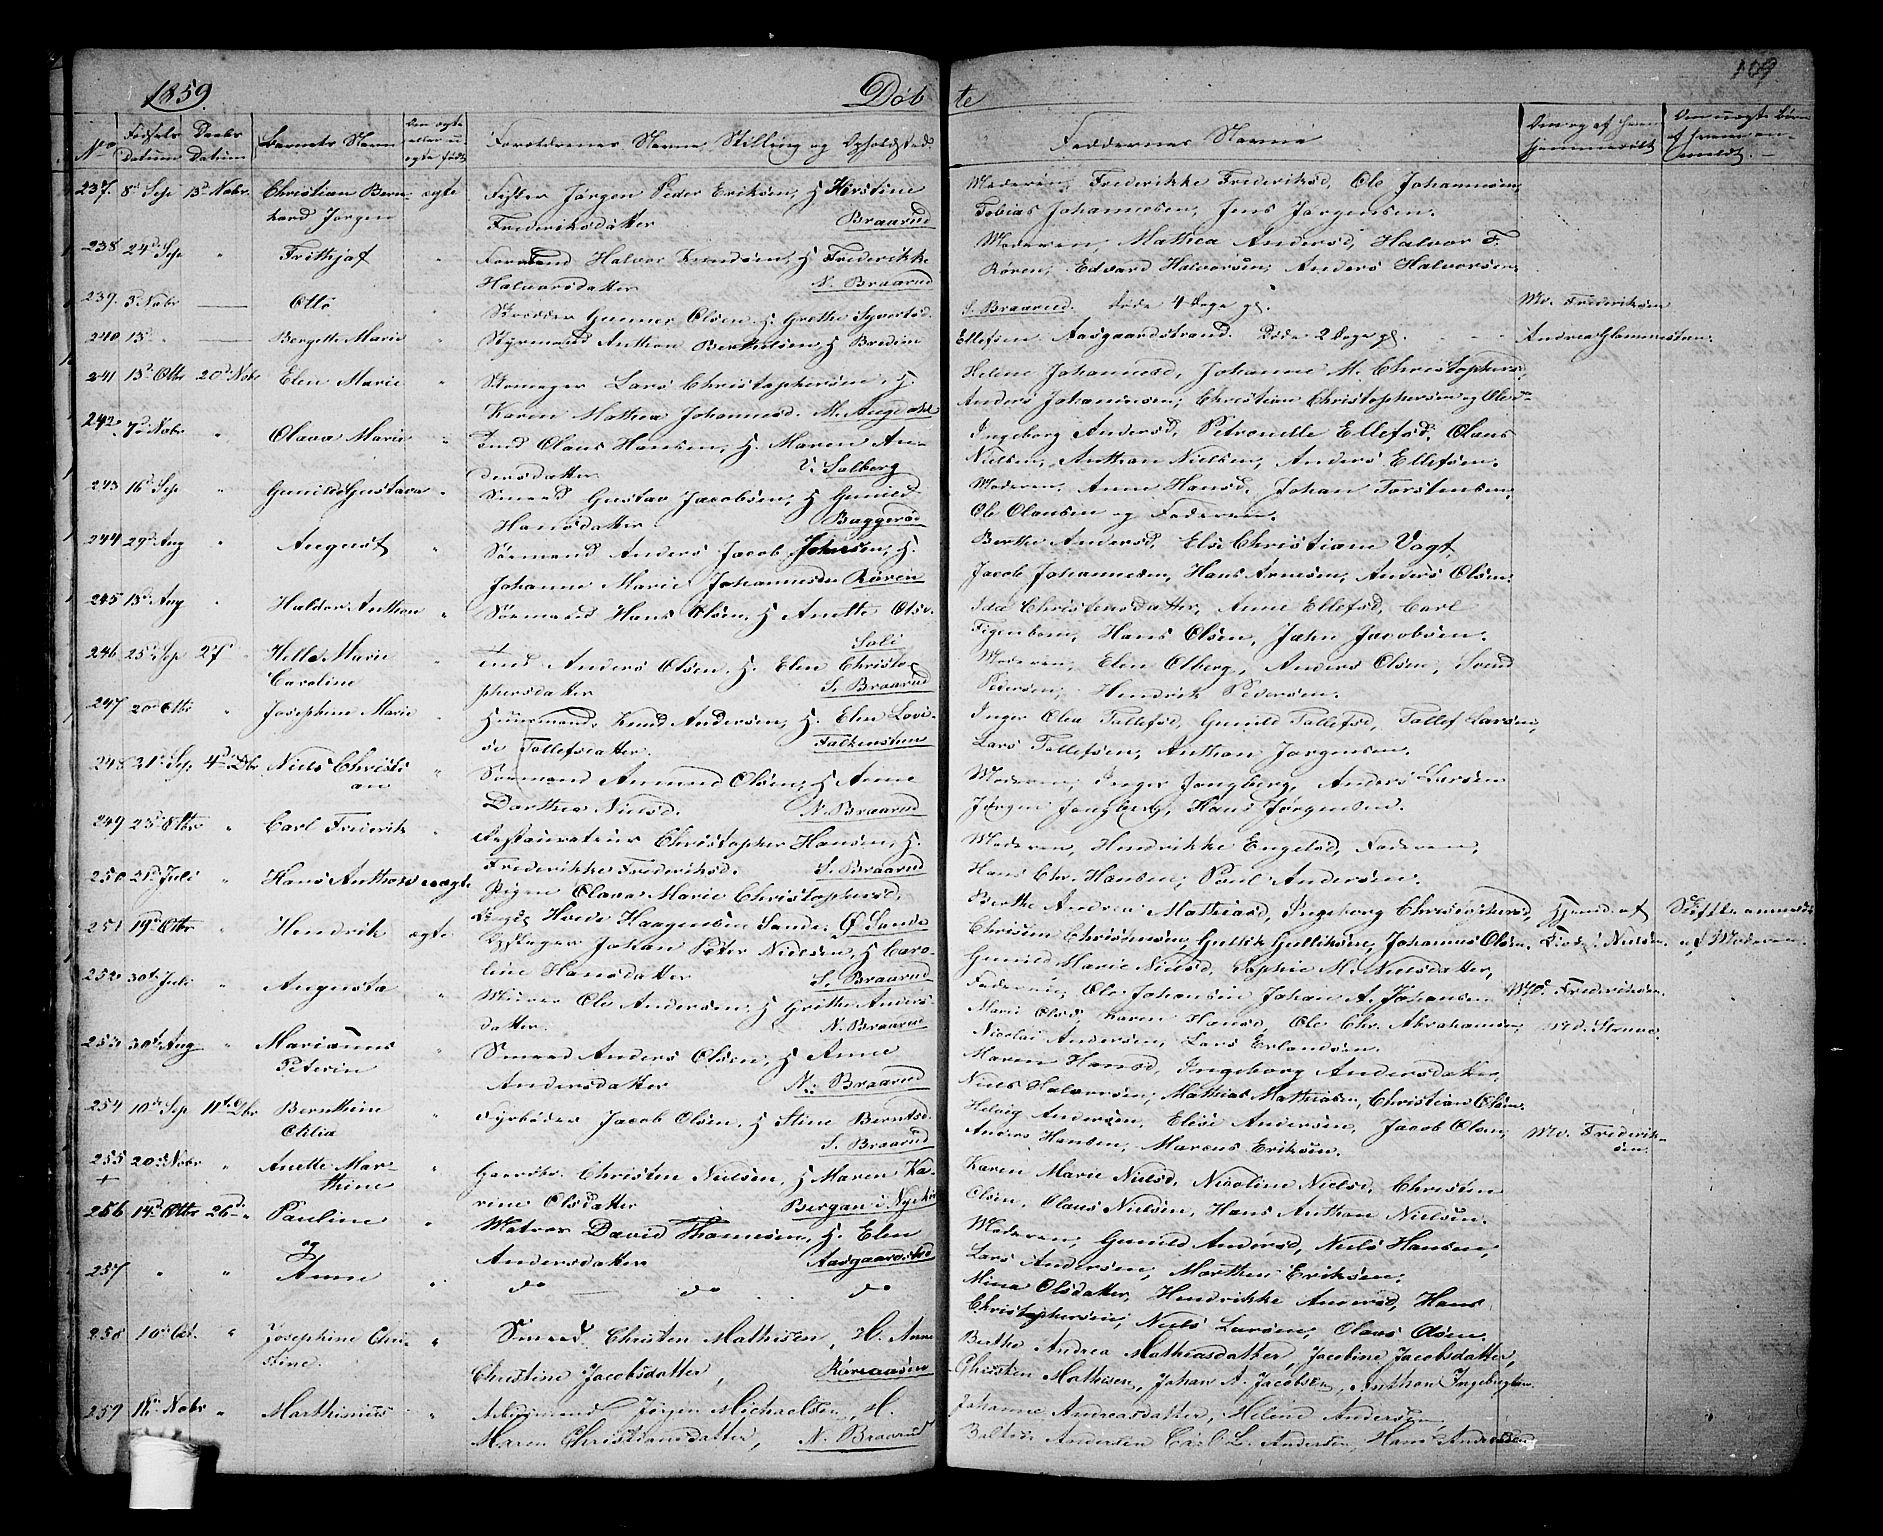 1859
Døb
te
109
No
Fødsels Datum
Daabs Datum
Barnets Navn
Om ægte eller uægte født
Forældrenes Navne Stilling og Opholdsted
Faddernes Navne
237. 8de Sep 13d Nobr. Christian Bern- ægte
hard Jørgen
Jørgen Peder Eriksen, H Kirstine
Frederiksdatter Braarud
Moderen, Frederikke Frederiksd, Ole Johannesen,
Tobias Johannesen, Jens Jørgensen.
238 24d Sep " Frithjof "
Halvor Knudsen, H Frederikke
Halvorsdatter N. Braarud
Moderen, Mathea Andersd, Halvor F.
Røren, Edvard Halvorsen, Anders Halvorsen,
239. 5 Nobr — Otto "
Skrædder Gunner Olsen H. Grethe Syvertsd.
S. Braarud. Døde 4 Dage gl. Md. Frederiksen
240 13d " — Bergette Marie "
Styrmand Anthon Berntsen, H Bredine
Ellefsen Aasgaardstrand. Døde 2 Dage gl. Andrea Glommestøen.
241 15d Otbr 20d Nobr Elen Marie "
Skomager Lars Christophersen, H.
Karen Mathea Johannesd. M. Augedahl
Helene Johannesd, Johanne M. Christophersd,
Anders Johannesen, Christian Christophersen og
242. 7d Nobr " Olava Marie "
Ind. Olaus Hansen, H. Maren An-
dersdatter V. Solberg
Ingeborg Andersd, Petronelle Ellefsd, Olaus
Nielsen, Anthon Nielsen, Anders Ellefsen.
243 16d Sep " Gunild Gustava "
Smed Gustav Jacobsen, H Gunild
Hansdatter Baggerød
Moderen, Anne Hansd, Johan Torstensen,
Ole Olausen og Faderen.
244 29d Aug " August "
Sømand Anders Jacob Johnsen, H.
Johanne Marie Johannesdr Røren
Berthe Andersd, Else Christiane Vogt,
Jacob Johannesen, Hans Arnesen, Anders Olsen.
245 13d Aug " Haldor Anthon "
Sømand Hans Olsen, H Anette Olsd.
Soli
Ida Christensdatter, Anne Ellefsd, Carl
Figenbom, Hans Olsen, John Jacobsen.
246 25d Sep 27d " Helle Marie
Caroline
Ind. Anders Olsen, H. Elen Christo-
phersdatter S. Braarud
Moderen, Elen Olberg, Anders Olsen, Svend
Pedersen, Hendrik Pedersen.
247 20d Otbr " Josephine Marie "
Huusmand Knud Andersen, H. Elen Lovi-
se Tollefsdatter. Falkensteen
Inger Olea Tollefsd, Gunild Tollefsd, Tollef Larsen,
Lars Tollefsen, Anthon Jørgensen.
248 21d Sep. 4d Dbr Niels Christi- "
an
Sømand Amund Olsen, H Anne
Dorthea Nielsd. N. Braarud
Moderen, Inger Jongberg, Anders Larsen
Jørgen Jongberg, Hans Jørgensen.
249 23d Otbr " Carl Frederik "
Restaurateur Christopher Hansen, H.
Frederikke Frederiksd. S. Braarud
Moderen, Hendrikke Engelsd, Faderen,
Hans Chr. Hansen, Poul Andersen.
250 21d Juli " Hans Anthon uægte
Pigen Olava Marie Christophersd,
Haagensen Sande, Ø Sande
Berthe Andrea Mathiasd, Ingeborg Christophersd,
Christen Christensen, Gullik Gulliksen, Johannes Olsen.
Hjemd. af Nielsen. af Moderen.
251 19d Otbr " Hendrik ægte
Johan Peter Nielsen, H Caro-
line Hansdatter S. Braarud
Gunild Marie Nielsd, Sophie M. Nielsdatter,
Faderen, Ole Johansen Johan A. Johansen Md. Frederiksen.
252 30d Juli " Augusta "
Murer Ole Andersen, H Grethe Anders-
datter. N. Braarud
Marie Olsd, Karen Hansd, Ole Chr. Abrahamsen, Md. Struve.
Nicolai Andersen, Lars Erlandsen.
253 30d Aug " Mariænus "
Peterin
Smed Anders Olsen, H Anne
Andersdatter N. Braarud
Maren Hansd, Ingeborg Andersdatter,
Niels Halvorsen, Mathias Mathisen, Christian Olsen.
254 10d Sep 11d Dbr Bernthine "
Otilia
Fyrbøder Jacob Olsen, H Stine Berntsd.
S. Braarud
Helvig Andersen, Elise Andersen, Jacob Olsen,
Anders Hansen, Marcus Eriksen. Md. Frederik-
sen.
255 20d Nobr " Anette Mar- "
thine
Gaardbr. Christen Nielsen, H Maren Ka-
rine Olsdatter Bergan i Nyekir
Karen Marie Nielsd, Nicoline Nielsd, Christen
Olsen, Olaus Nielsen, Hans Anthon Nielsen.
256 14d Otbr 26d " Pauline "
og
Matros David Thomesen, H. Elen
Andersdatter Aasgaardstrd
Moderen, Gunild Andersd, Niels Hansen,
Lars Andersen, Marthin Eriksen.
257 " " Anne "
do — do . do
Mina Olsdatter, Hendrikke Andersd, Hans
Christophersen, Niels Larsen, Olaus Olsen.
258 10d Oct. " Josephine Chri- "
stine.
Smed, Christen Mathisen, H. Anne
Christine Jacobsdatter, Røreaasen
Berthe Andrea Mathiasdatter, Jacobine Jacobsdatter,
Christen Mathisen, Johan A. Jacobsen, Anthon Ingebregtsen.
259 18d Nobr " Marthinius "
Jørgen Michaelsen, H.
Maren Christiansdatter, N. Braarud
Johanne Andreasdatter, Helene Andersen,
Andersen Carl L. Andersen, Hans Andreassen